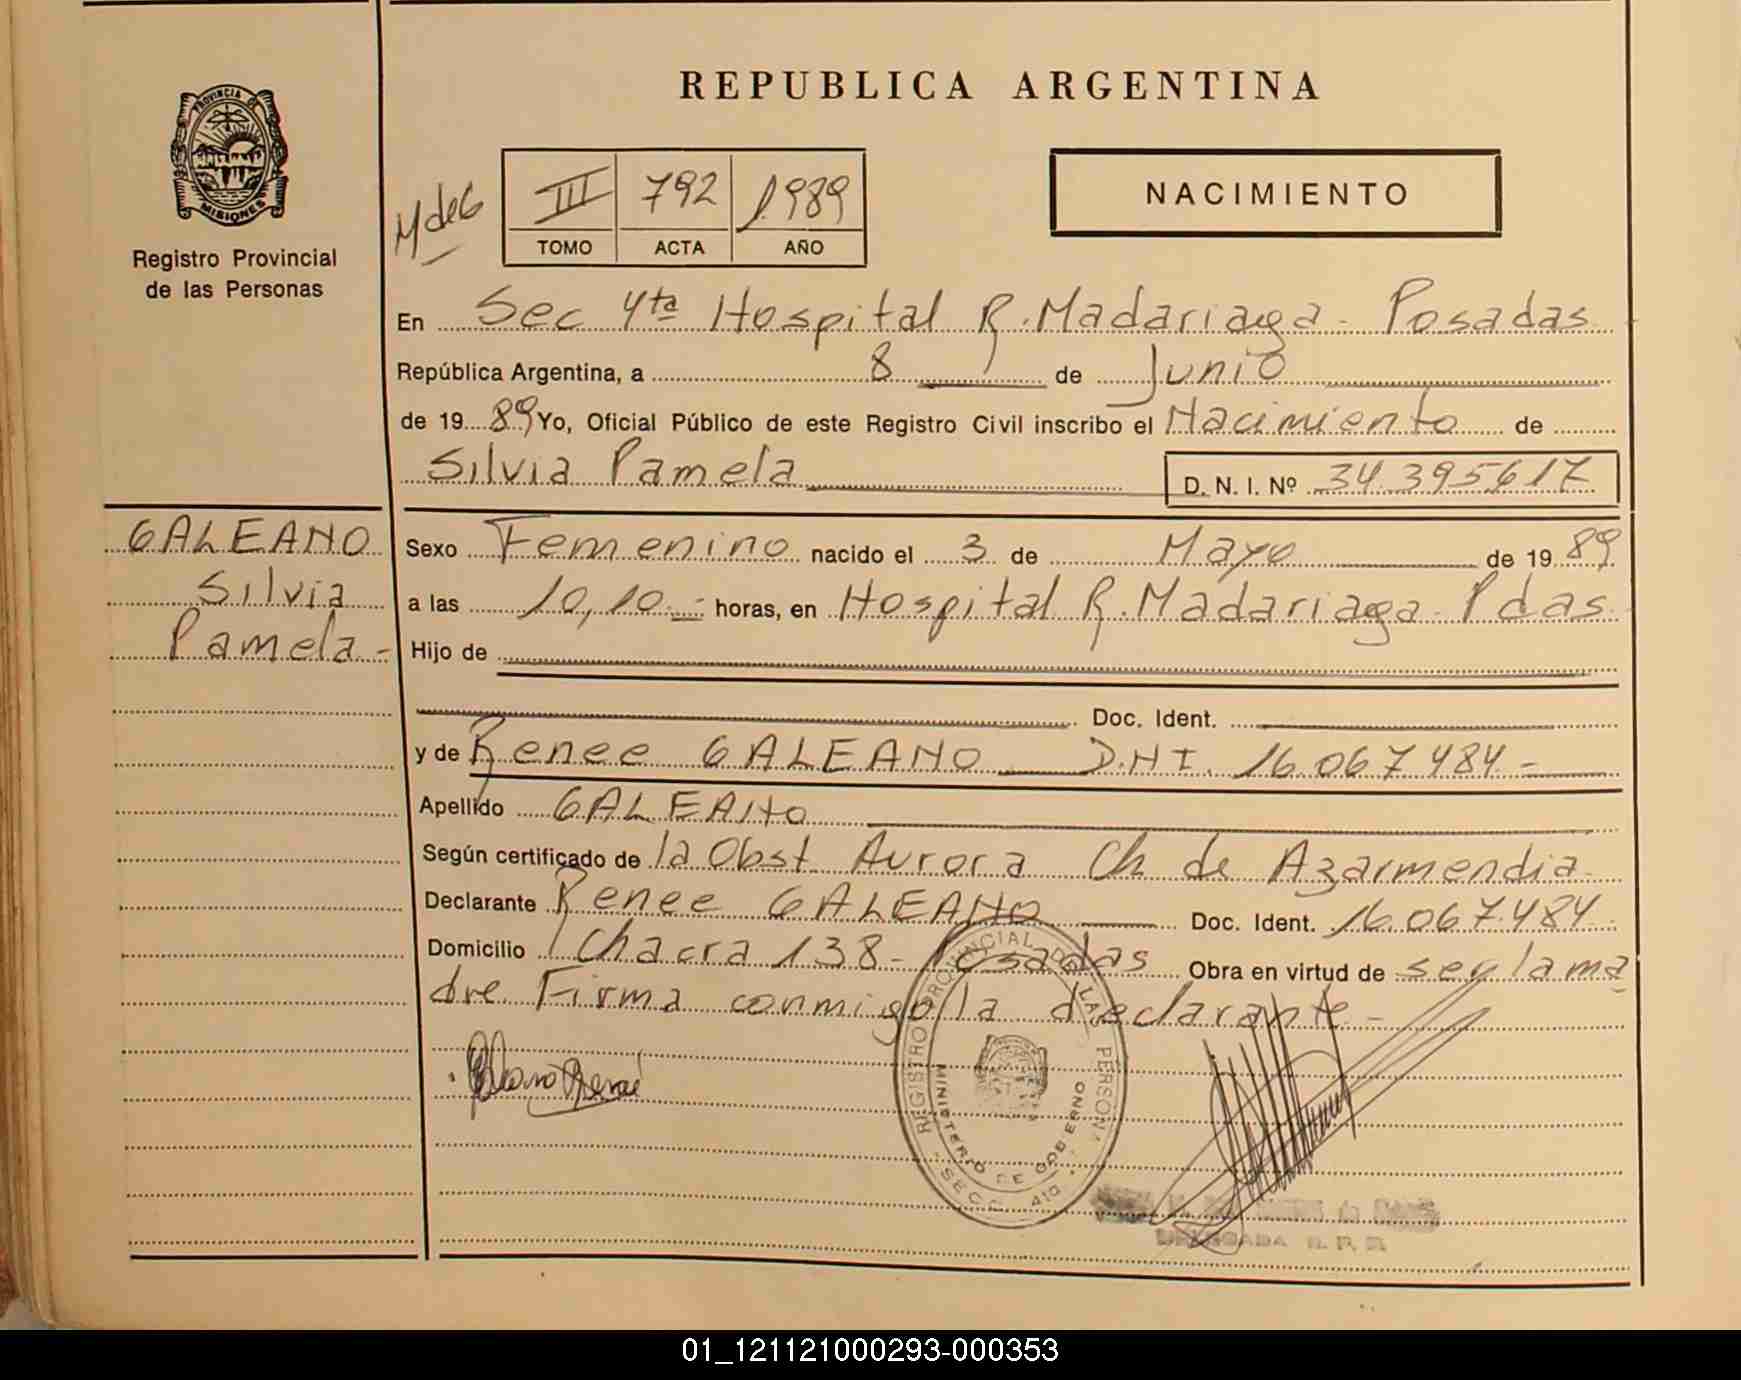 PROVINCIA DE
MISIONES
Registro Provincial
de las Personas
REPUBLICA ARGENTINA
NACIMIENTO
M de G
III 792 1989
TOMO ACTA AÑO
En Sec 4ta Hospital R. Madariaga - Posadas
República Argentina, a 8 de Junio
de 1989 Yo, Oficial Público de este Registro Civil inscribo el Nacimiento de
Silvia Pamela D. N. I. Nº 34.395617
GALEANO
Silvia
Pamela -
Sexo Femenino nacido el 3 de Mayo de 1989
a las 10,10.- horas, en Hospital R. Madariaga - Pdas.
Hijo de
Doc. Ident.
y de Renee GALEANO D.N.I. 16.067.484 -
Apellido GALEANO
Según certificado de la Obst. Aurora Ch de Azarmendia
Declarante Renee GALEANO Doc. Ident. 16.067.484.
Domicilio Chacra 138 - Posadas Obra en virtud de ser la ma
dre Firma conmigo la declarante -
REGISTRO PROVINCIAL DE LAS PERSONAS
MINISTERIO DE GOBIERNO
SECC. 4ta
Galeano Renee
DELEGADA R. P. P.
01_121121000293-000353